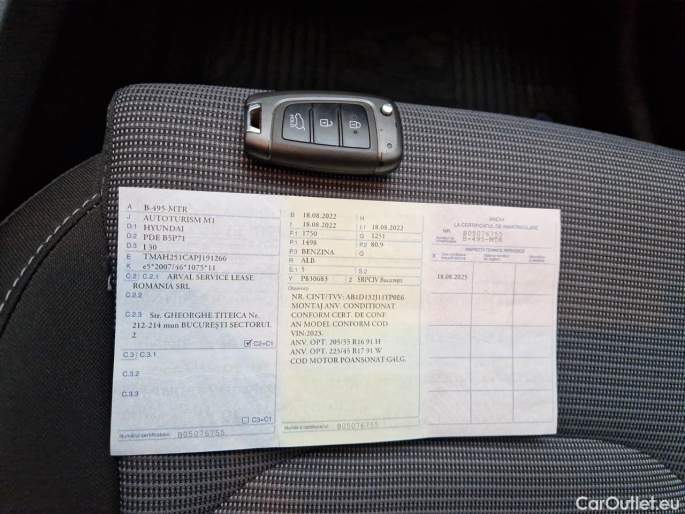 A B-495-MTR
J AUTOTURISM M1
D.1 HYUNDAI
D.2 PDE B5P71
D.3 I 30
E TMAH251CAPJ191266
K e5*2007/46*1075*11
C.2 C.2.1 ARVAL SERVICE LEASE
ROMANIA SRL
C.2.2
C.2.3 Str. GHEORGHE TITEICA Nr.
212-214 mun BUCUREȘTI SECTORUL
2
C2=C1
C.3 C.3.1
C.3.2
C.3.3
C3=C1
Numărul certificatului B05076755
B 18.08.2022 H
I 18.08.2022 I.1 18.08.2022
F.1 1750 G 1251
P.1 1498 P.2 80.9
P.3 BENZINA Q
R ALB
S.1 5 S.2
Y P830683 Z SRPCIV București
Observații
NR. CINT/TVV: AB1D152J11YP0E6
MONTAJ ANV. CONDITIONAT
CONFORM CERT. DE CONF
AN MODEL CONFORM COD
VIN:2023.
ANV. OPT. 205/55 R16 91 H
ANV. OPT. 225/45 R17 91 W
COD MOTOR POANSONAT:G4LG.
Numărul certificatului B05076755
ANEXA
LA CERTIFICATUL DE ÎNMATRICULARE
NR. B05076755
B-495-MTR
INSPECȚII TEHNICE PERIODICE
X
18.08.2025
CarOutlet.eu